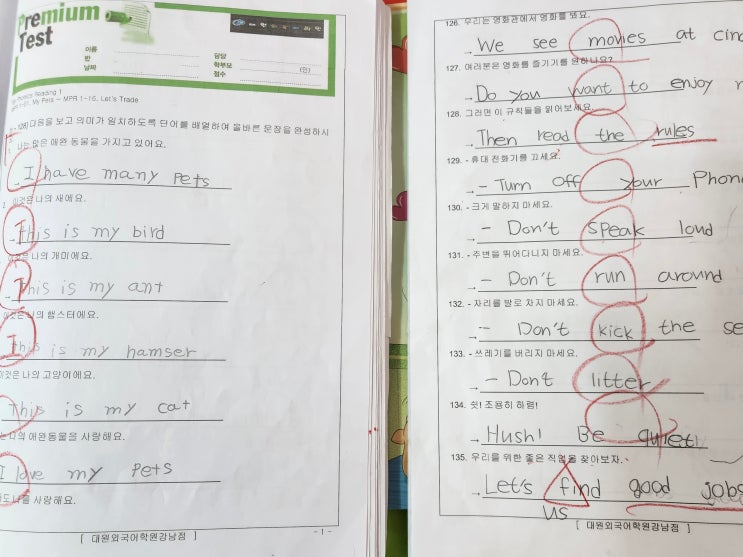 Premium
Test
이름
반
날짜
담당
학부모
(인)
점수
Reading 1
My Pets ~ MPR 1-16, Let's Trade
다음을 보고 의미가 일치하도록 단어를 배열하여 올바른 문장을 완성하시
나는 많은 애완 동물을 가지고 있어요.
I have many pets
이것은 나의 새예요.
This is my bird
나의 개미예요.
This is my ant
나의 햄스터예요.
This is my hamser
이것은 나의 고양이예요.
This is my cat
나의 애완동물을 사랑해요.
I love my pets
사랑해요.
- 1 -
[ 대원외국어학원강남점 ]
126. 우리는 영화관에서 영화를 봐요.
→ We see movies at
127. 여러분은 영화를 즐기기를 원하나요?
→ Do you want to enjoy
128. 그러면 이 규칙들을 읽어보세요.
→ Then read the rules
129. - 휴대 전화기를 끄세요.
→ - Turn off your Phon
130. - 크게 말하지 마세요.
→ - Don't speak loud
131. - 주변을 뛰어다니지 마세요.
→ - Don't run around
132. - 자리를 발로 차지 마세요.
→ - Don't kick the se
133. - 쓰레기를 버리지 마세요.
→ - Don't litter
134. 쉿! 조용히 하렴!
→ Hush! Be quiet!
135. 우리를 위한 좋은 직업을 찾아보자.
→ Let's find good jobs
us
[ 대원외국어학원강남점 ]